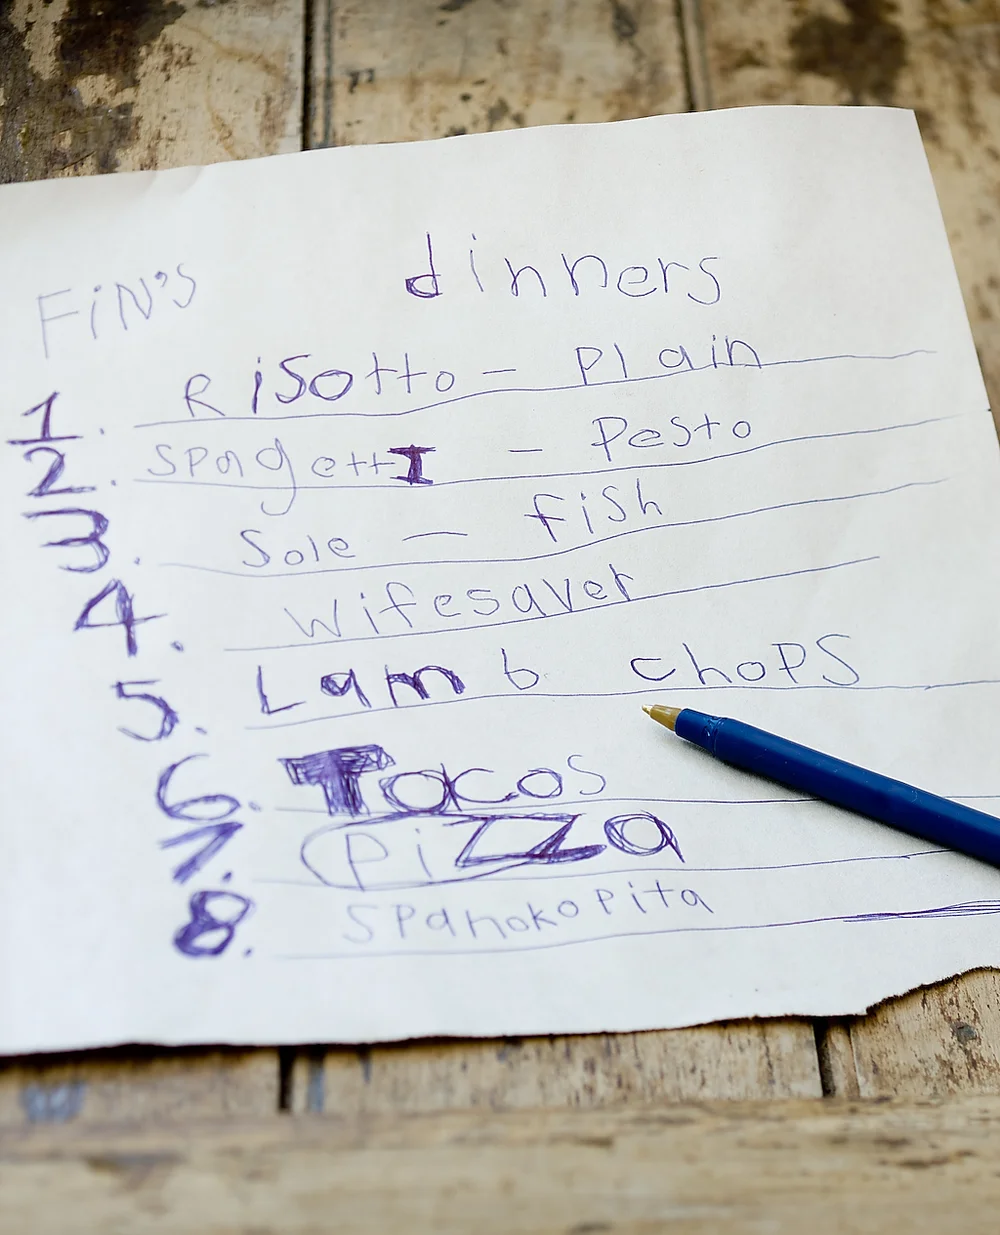 FiN's dinners
1. Risotto - Plain
2. SpagettI - Pesto
3. Sole - fish
4. Wifesaver
5. Lamb choPS
6. Tacos
7. PiZZa
8. SPanokoPita